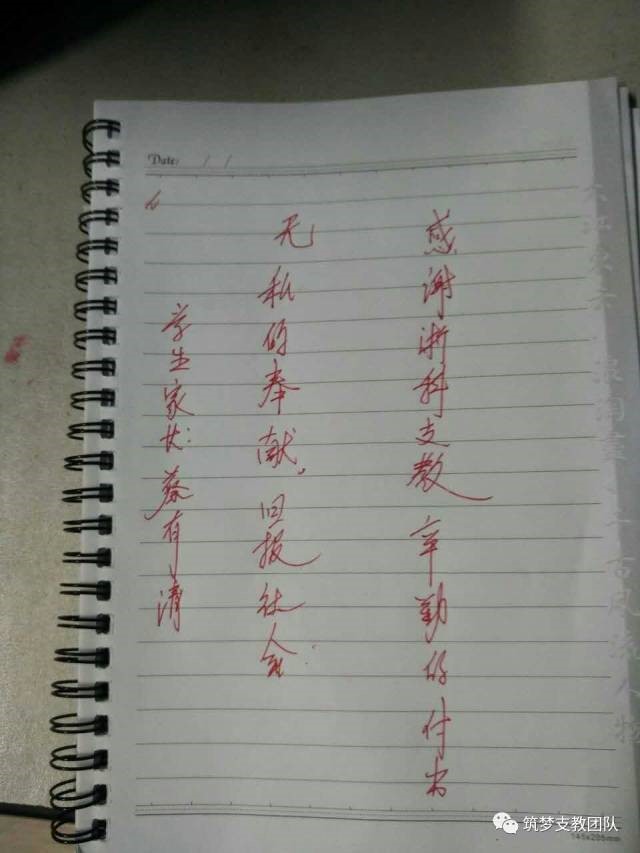 感谢浙科支教 辛勤的付出
无私的奉献。回报社会.
学生家长:蔡有清
Date: / /
筑梦支教团队